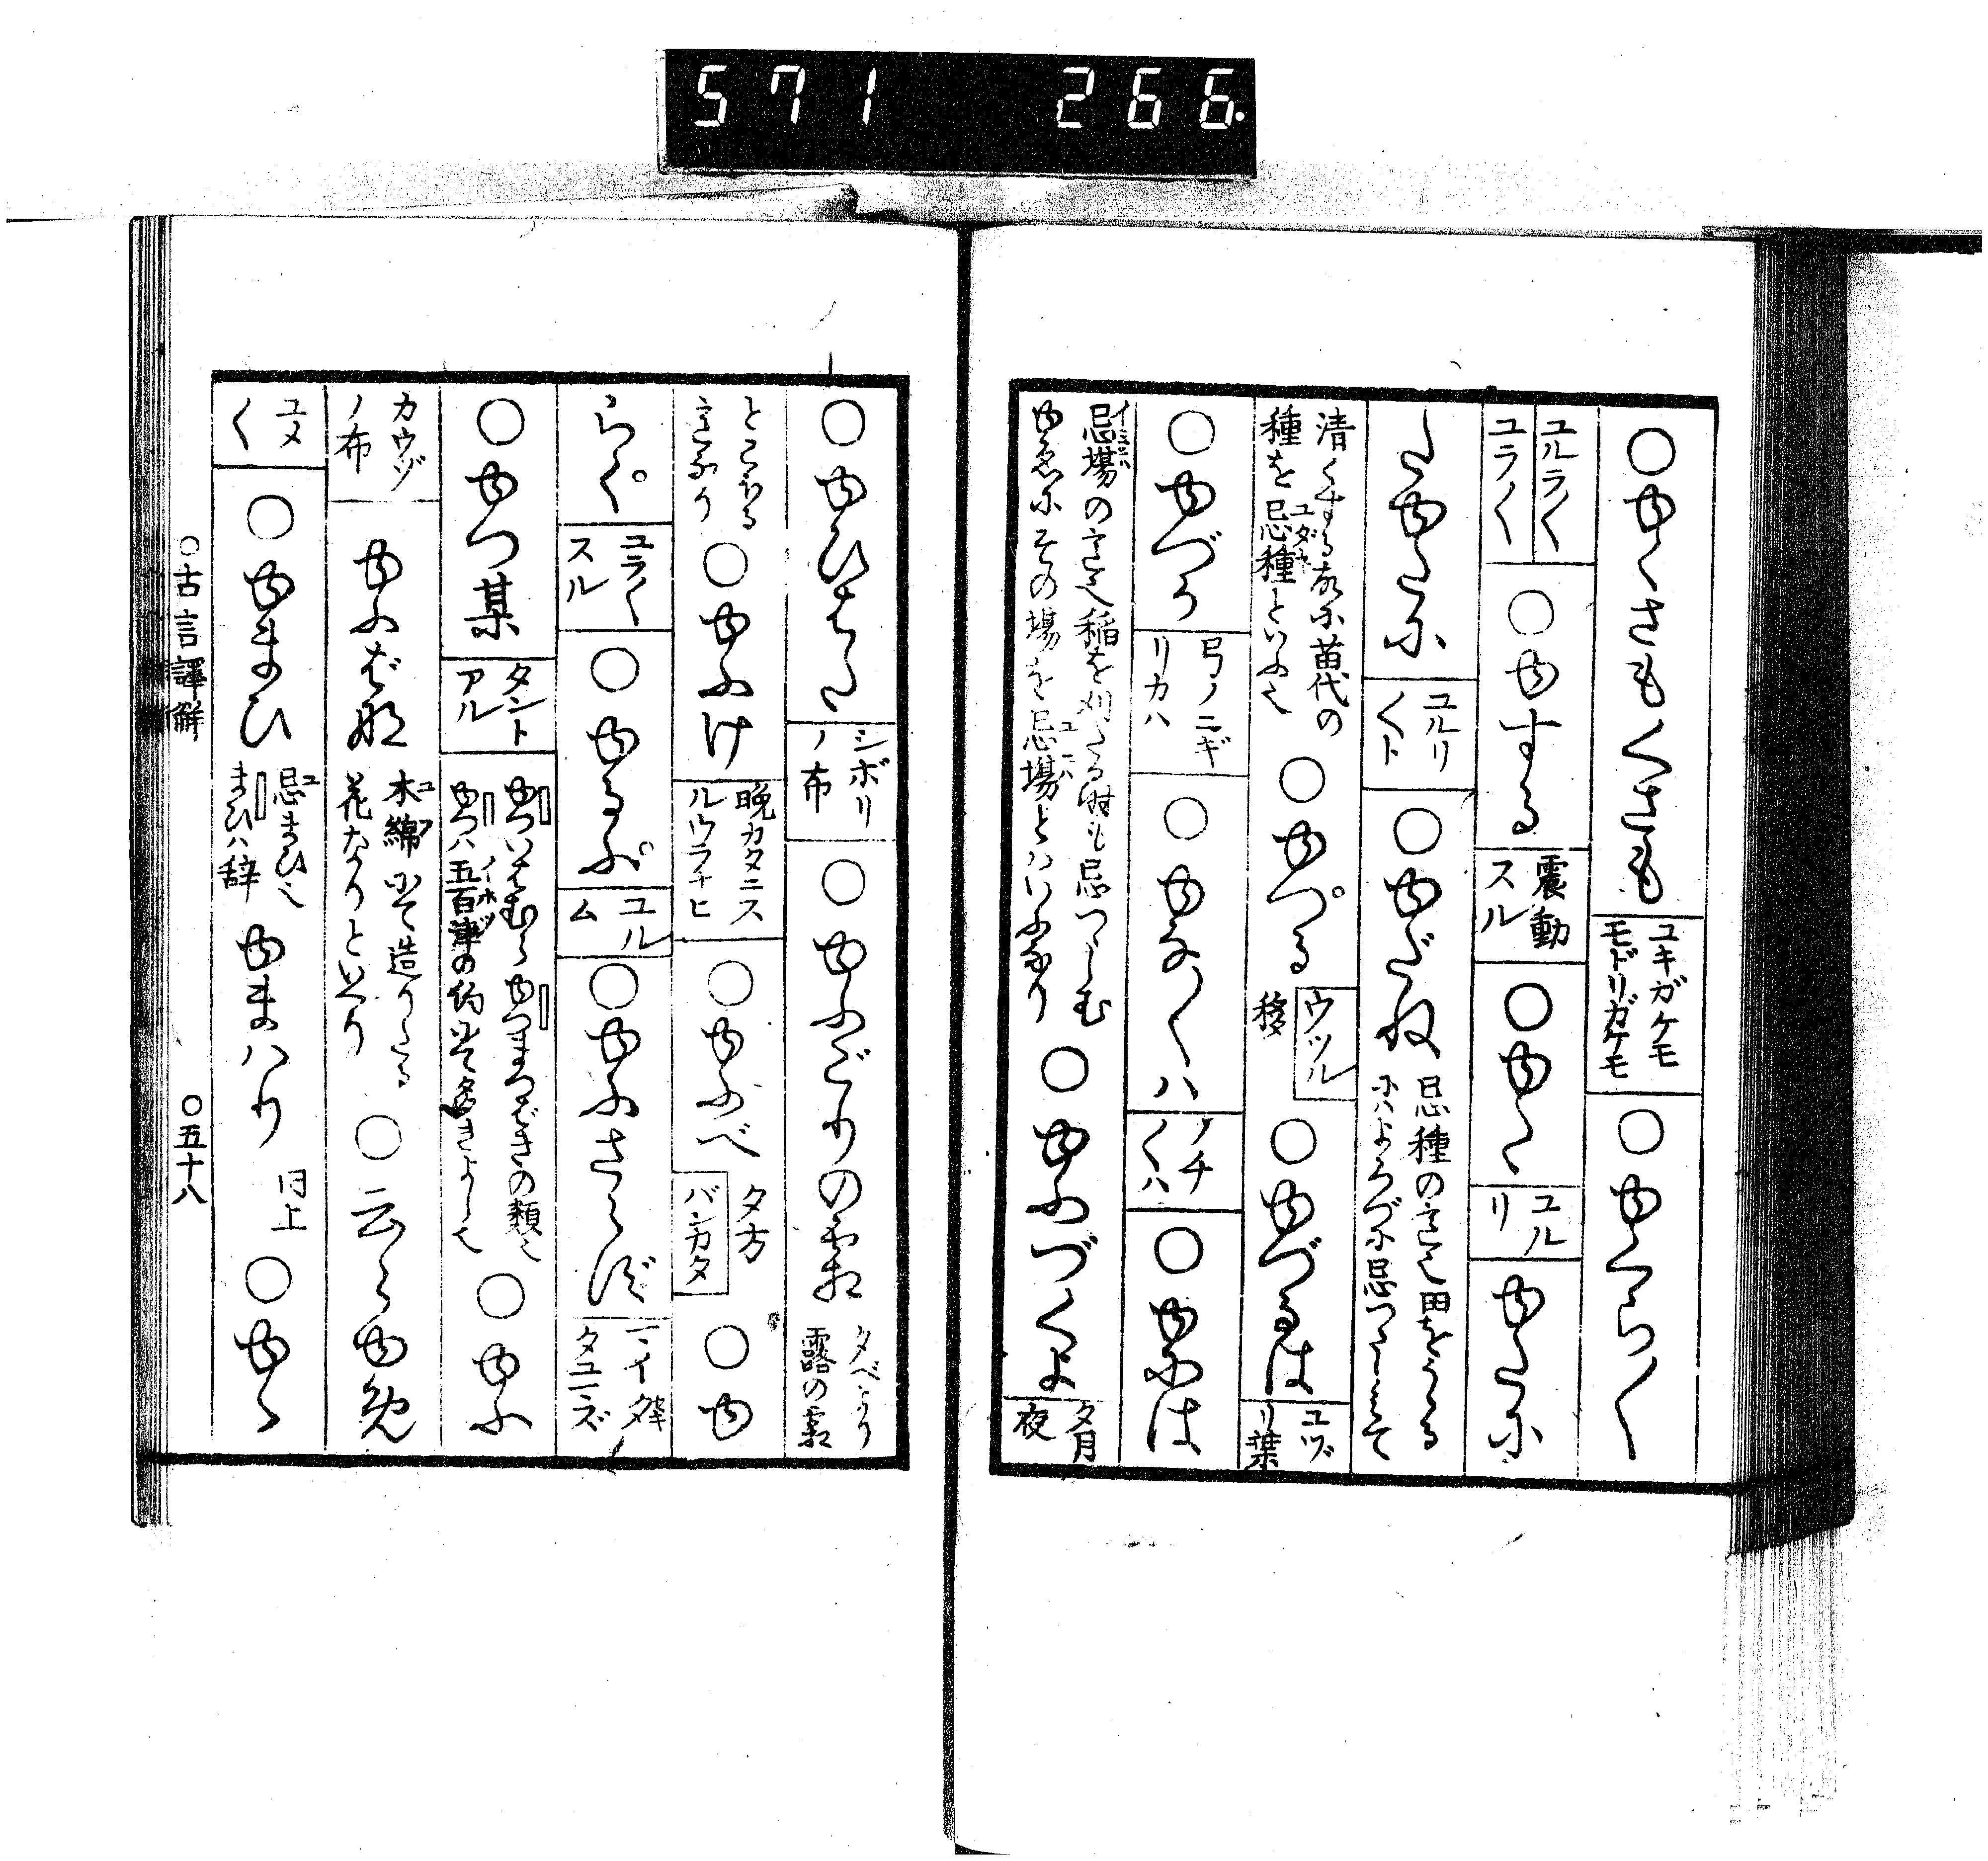 571 266
○ゆくさもくさも ユキガケモ モドリガケモ ○ゆくら〳〵
ユルラ〳〵 ユラ〳〵 ○ゆする 震動スル ○ゆた ユルリ ゆたに
たゆたに ユルリ〳〵ト ○ゆだね 忌種のこと也田をうゝる にハよろづに忌つゝしみて
清くする故に苗代の 種を忌種といふ也 ○ゆつる ウツル 移 ○ゆづるは ユヅリ葉
○ゆづか 弓ノニギリカハ ○ゆなくハ ノチ〳〵ハ ○ゆには
忌場のこと也稲を刈たる時も忌つゝしむ ゆゑにその場を忌場とハいふなり ○ゆふづくよ 夕月夜
○ゆひはた シボリノ布 ○ゆふごりの霜 夕べより 露の霜
とこほる ○ゆふけ 晩カタニスルウラナヒ ○ゆふべ 夕方 バンカタ ○ゆ
らく ユラ〳〵スル ○ゆるふ ユルム ○ゆふさらず
○ゆつ某 タントアル ゆついはむらゆつまつばきの類也 ゆつハ五百津の約にて多きよし也 ○ゆふ
カウゾノ布 ゆふばな 木綿にて造りたる 花なりといへり ○云々ゆめ
ユメ〳〵 ○ゆまひ 忌まひ也 まひハ辞 ゆまハり 同上 ○ゆゝ
○古言譯解 ○五十八